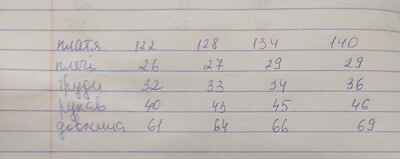 плаття 122 128 134 140
плечі 26 27 29 29
груди 32 33 34 36
рукав 40 43 45 46
довжина 61 64 66 69